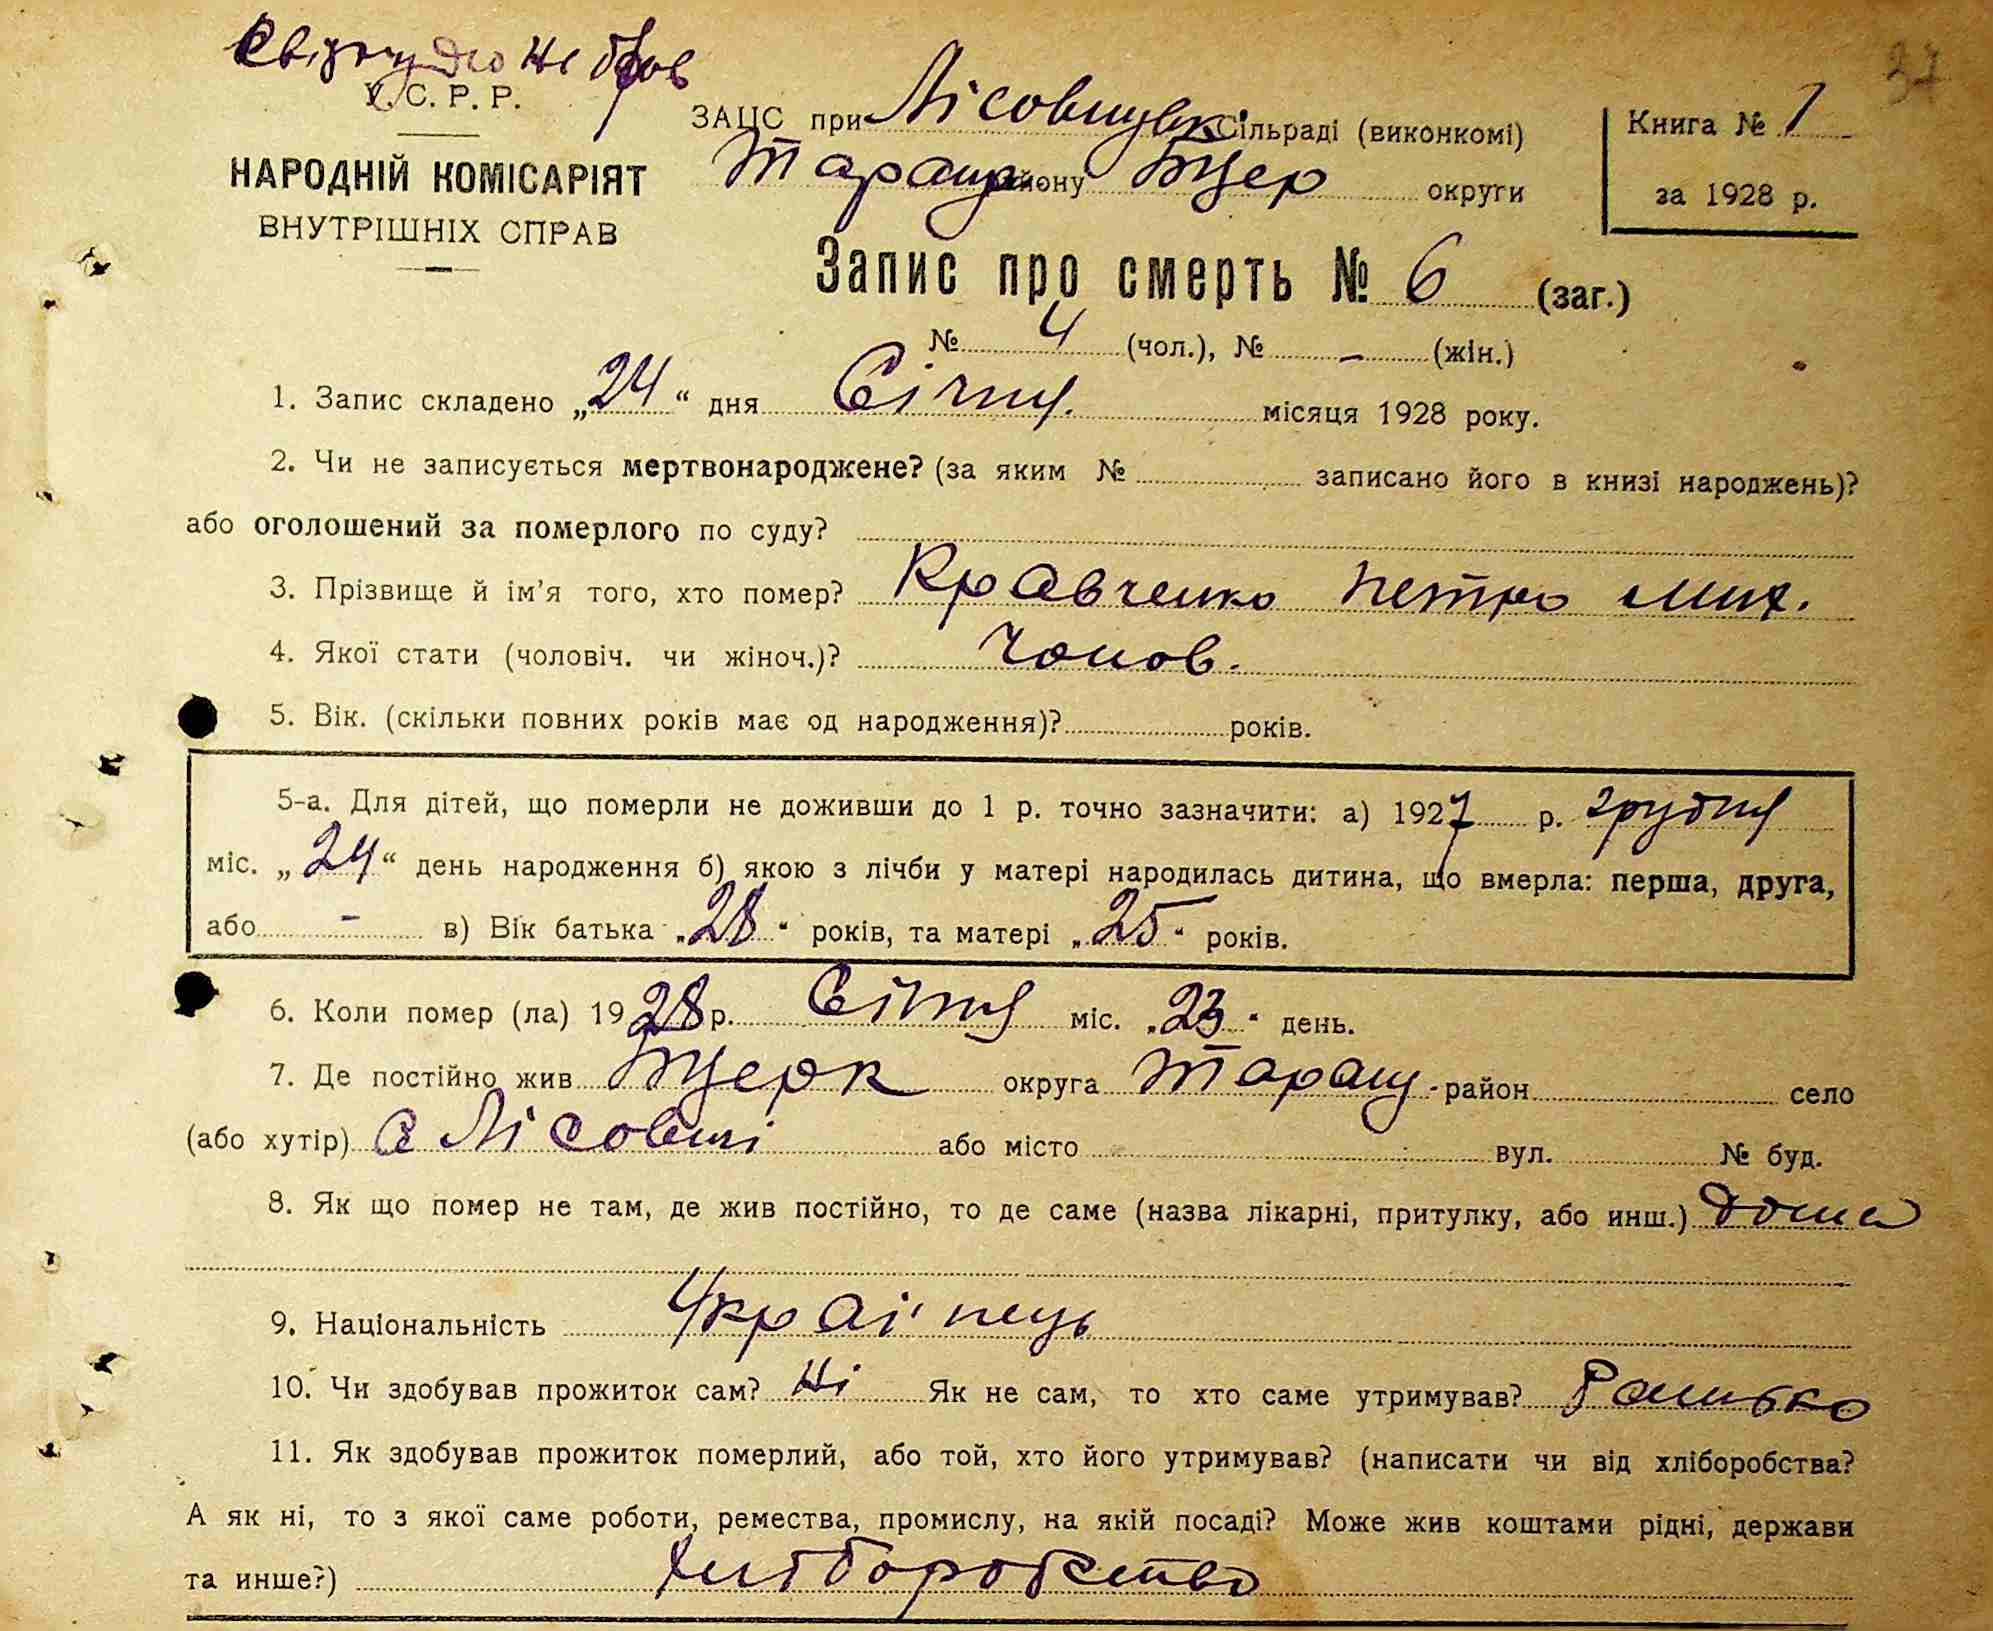 37
У. С. Р. Р.
НАРОДНІЙ КОМІСАРІЯТ
ВНУТРІШНІХ СПРАВ
ЗАЦС при Лісовицьк. Сільраді (виконкомі)
Таращ. району БЦер округи
Книга № 1
за 1928 р.
Запис про смерть № 6 (заг.)
№ 4 (чол.), № - (жін.)
1. Запис складено „24“ дня Січня місяця 1928 року.
2. Чи не записується мертвонароджене? (за яким № записано його в книзі народжень)?
або оголошений за померлого по суду?
3. Прізвище й ім’я того, хто помер? Кравченко Петро Мих.
4. Якої стати (чоловіч. чи жіноч.)? Чолов.
5. Вік. (скільки повних років має од народження)? років.
5-а. Для дітей, що померли не доживши до 1 р. точно зазначити: а) 1927 р. грудня
міс. „24“ день народження б) якою з лічби у матері народилась дитина, що вмерла: перша, друга,
або - в) Вік батька „28“ років, та матері „25“ років.
6. Коли помер (ла) 1928 р. Січня міс. „23“ день.
7. Де постійно жив БЦерк округа Таращ. район село
(або хутір) с Лісовичі або місто вул. № буд.
8. Як що помер не там, де жив постійно, то де саме (назва лікарні, притулку, або инш.) дома
9. Національність Украі'нець
10. Чи здобував прожиток сам? Ні Як не сам, то хто саме утримував?
11. Як здобував прожиток померлий, або той, хто його утримував? (написати чи від хліборобства?
А як ні, то з якої саме роботи, ремества, промислу, на якій посаді? Може жив коштами рідні, держави
та инше?) Хліборобство